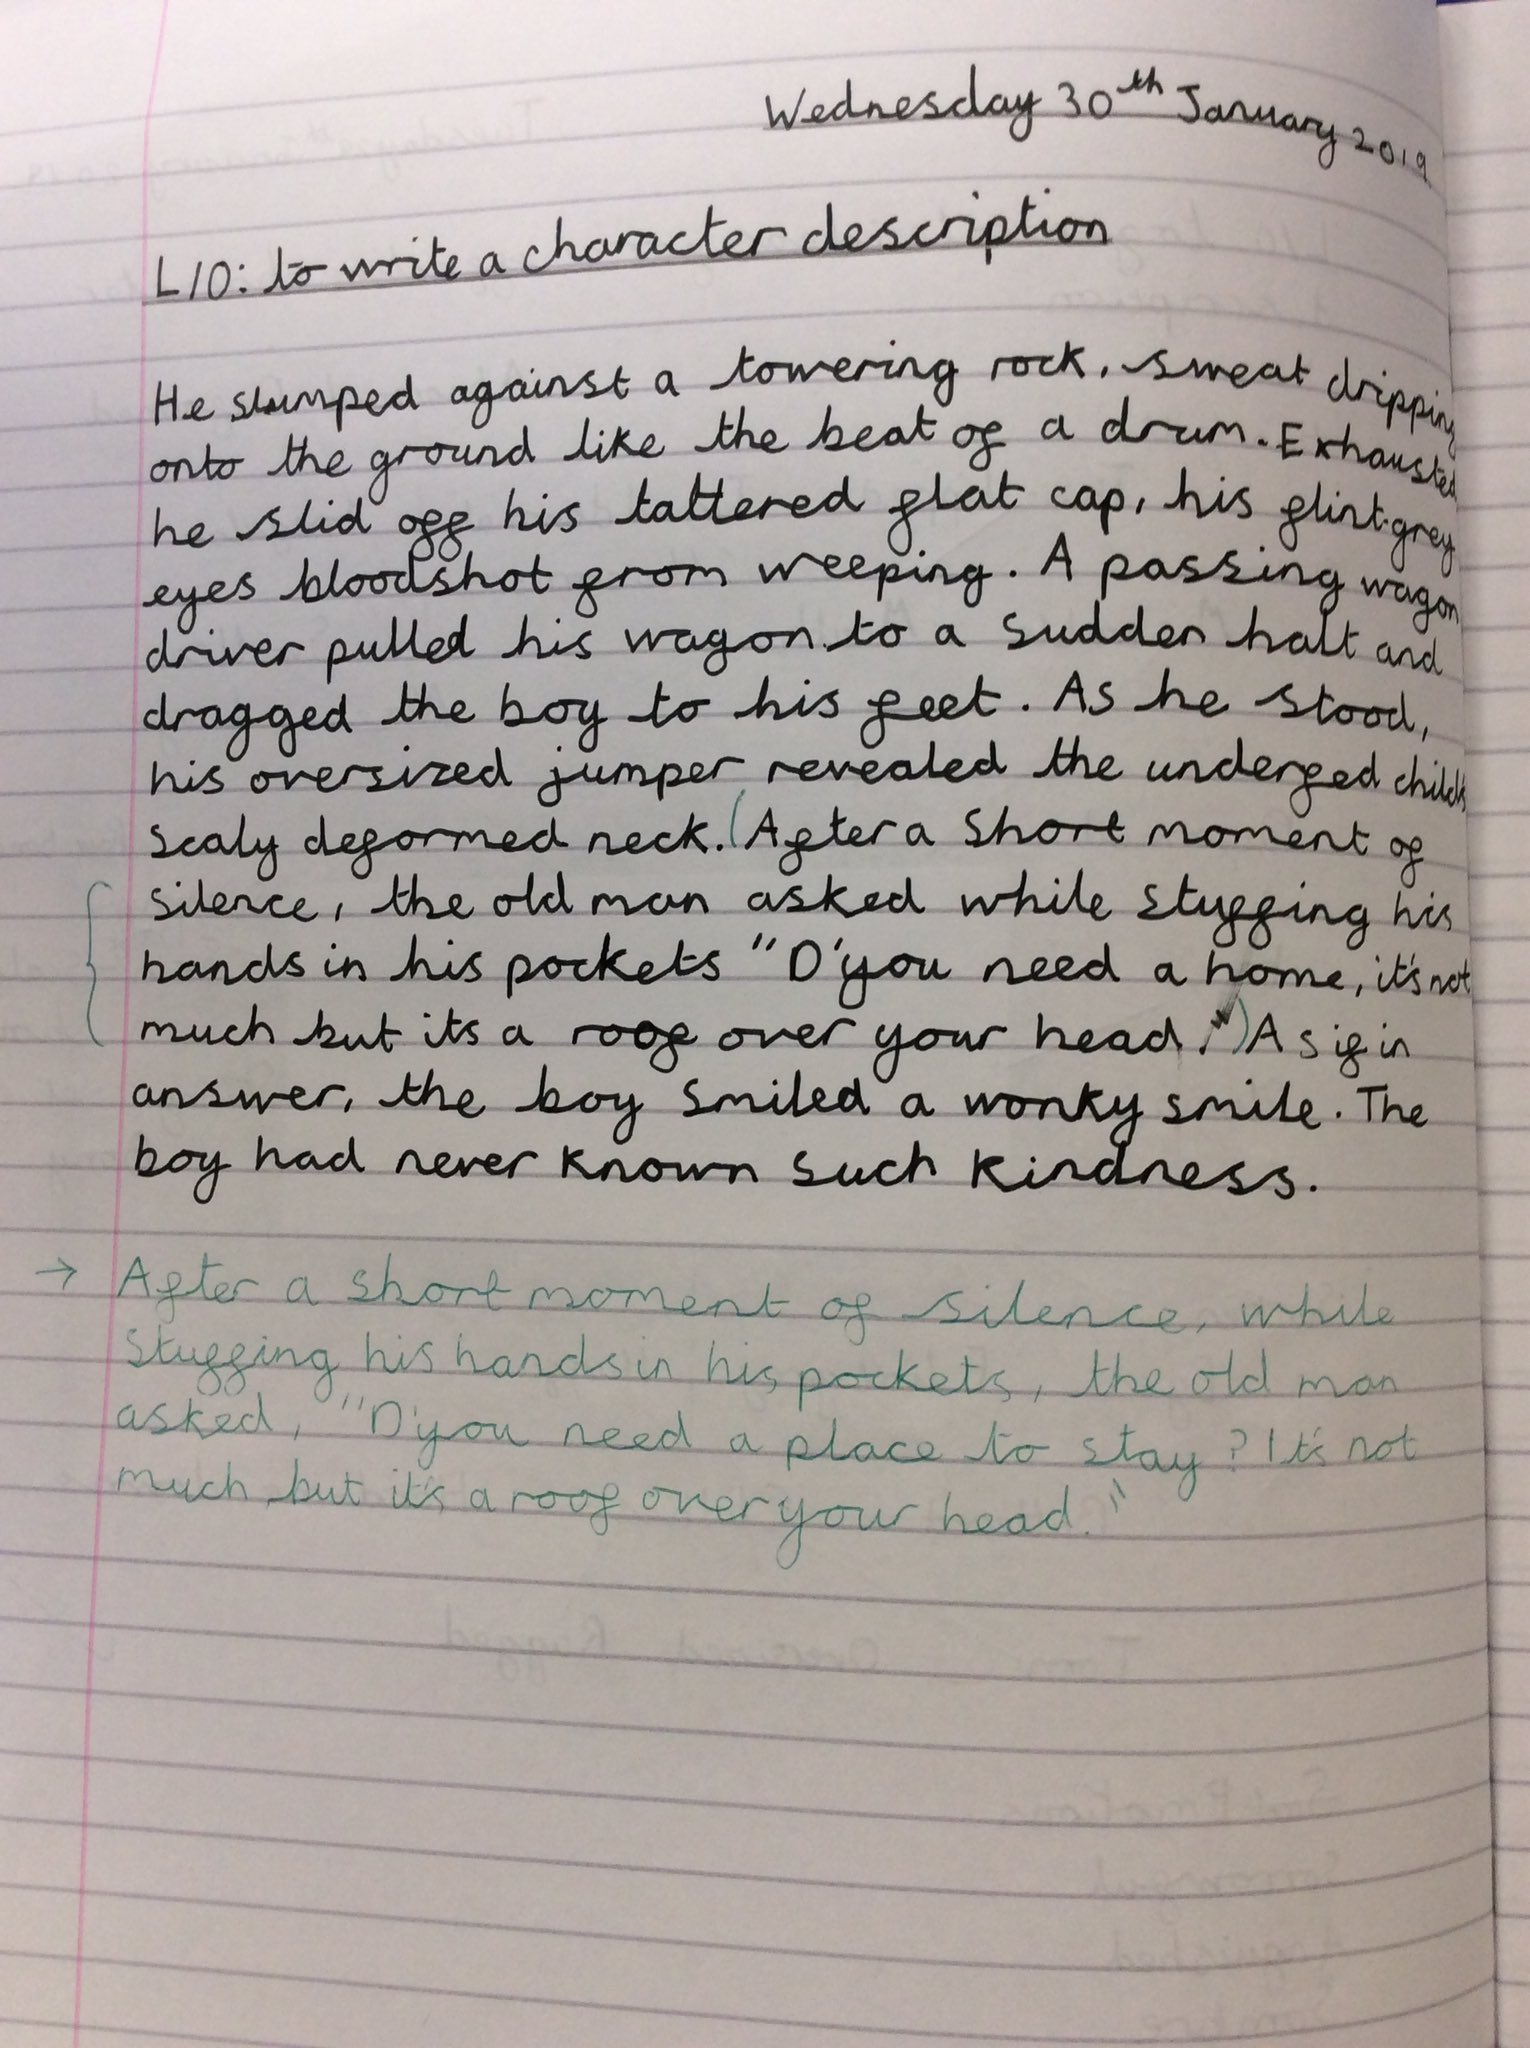 Wednesday 30th January 2019
L/O: to write a character description
He slumped against a towering rock, sweat dripping
onto the ground like the beat of a drum. Exhausted
he slid off his tattered flat cap, his flint-grey
eyes bloodshot from weeping. A passing wagon
driver pulled his wagon to a sudden halt and
dragged the boy to his feet. As he stood,
his oversized jumper revealed the underfed child's
scaly deformed neck. (After a short moment of
silence, the old man asked while stuffing his
hands in his pockets "D'you need a home, it's not
much but its a roof over your head.") As if in
answer, the boy smiled a wonky smile. The
boy had never known such kindness.
→ After a short moment of silence, while
stuffing his hands in his pockets, the old man
asked, "D'you need a place to stay? It's not
much, but it's a roof over your head."